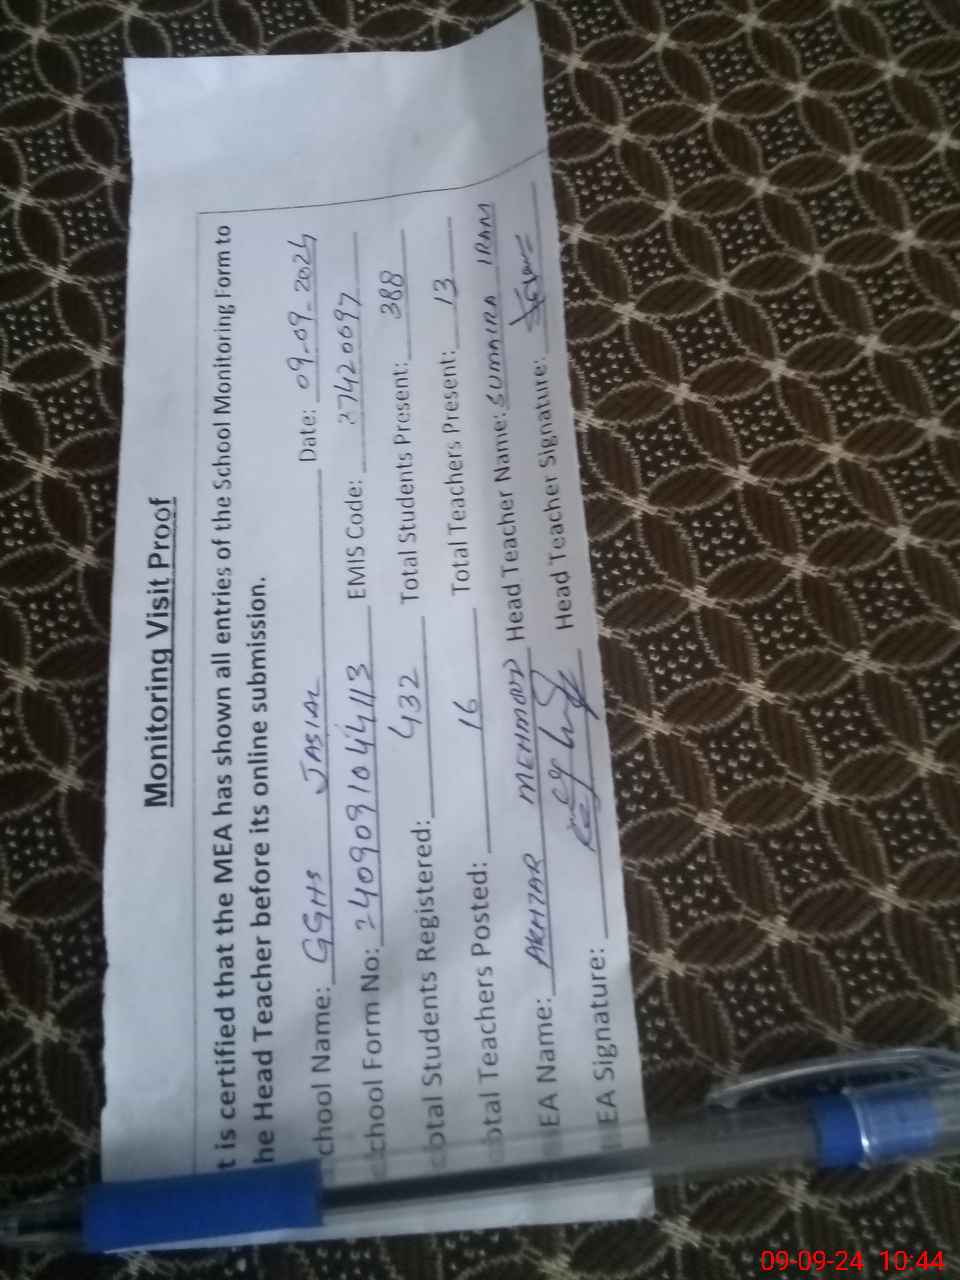 Monitoring Visit Proof
t is certified that the MEA has shown all entries of the School Monitoring Form to
he Head Teacher before its online submission.
chool Name: GGHS JASIAL Date: 09-09-2024
chool Form No: 2409091044113 EMIS Code: 37420097
otal Students Registered: 432 Total Students Present: 388
otal Teachers Posted: 16 Total Teachers Present: 13
EA Name: AKHTAR MEHMOOD Head Teacher Name: SUMAIRA IRAM
EA Signature: Head Teacher Signature:
09-09-24 10:44